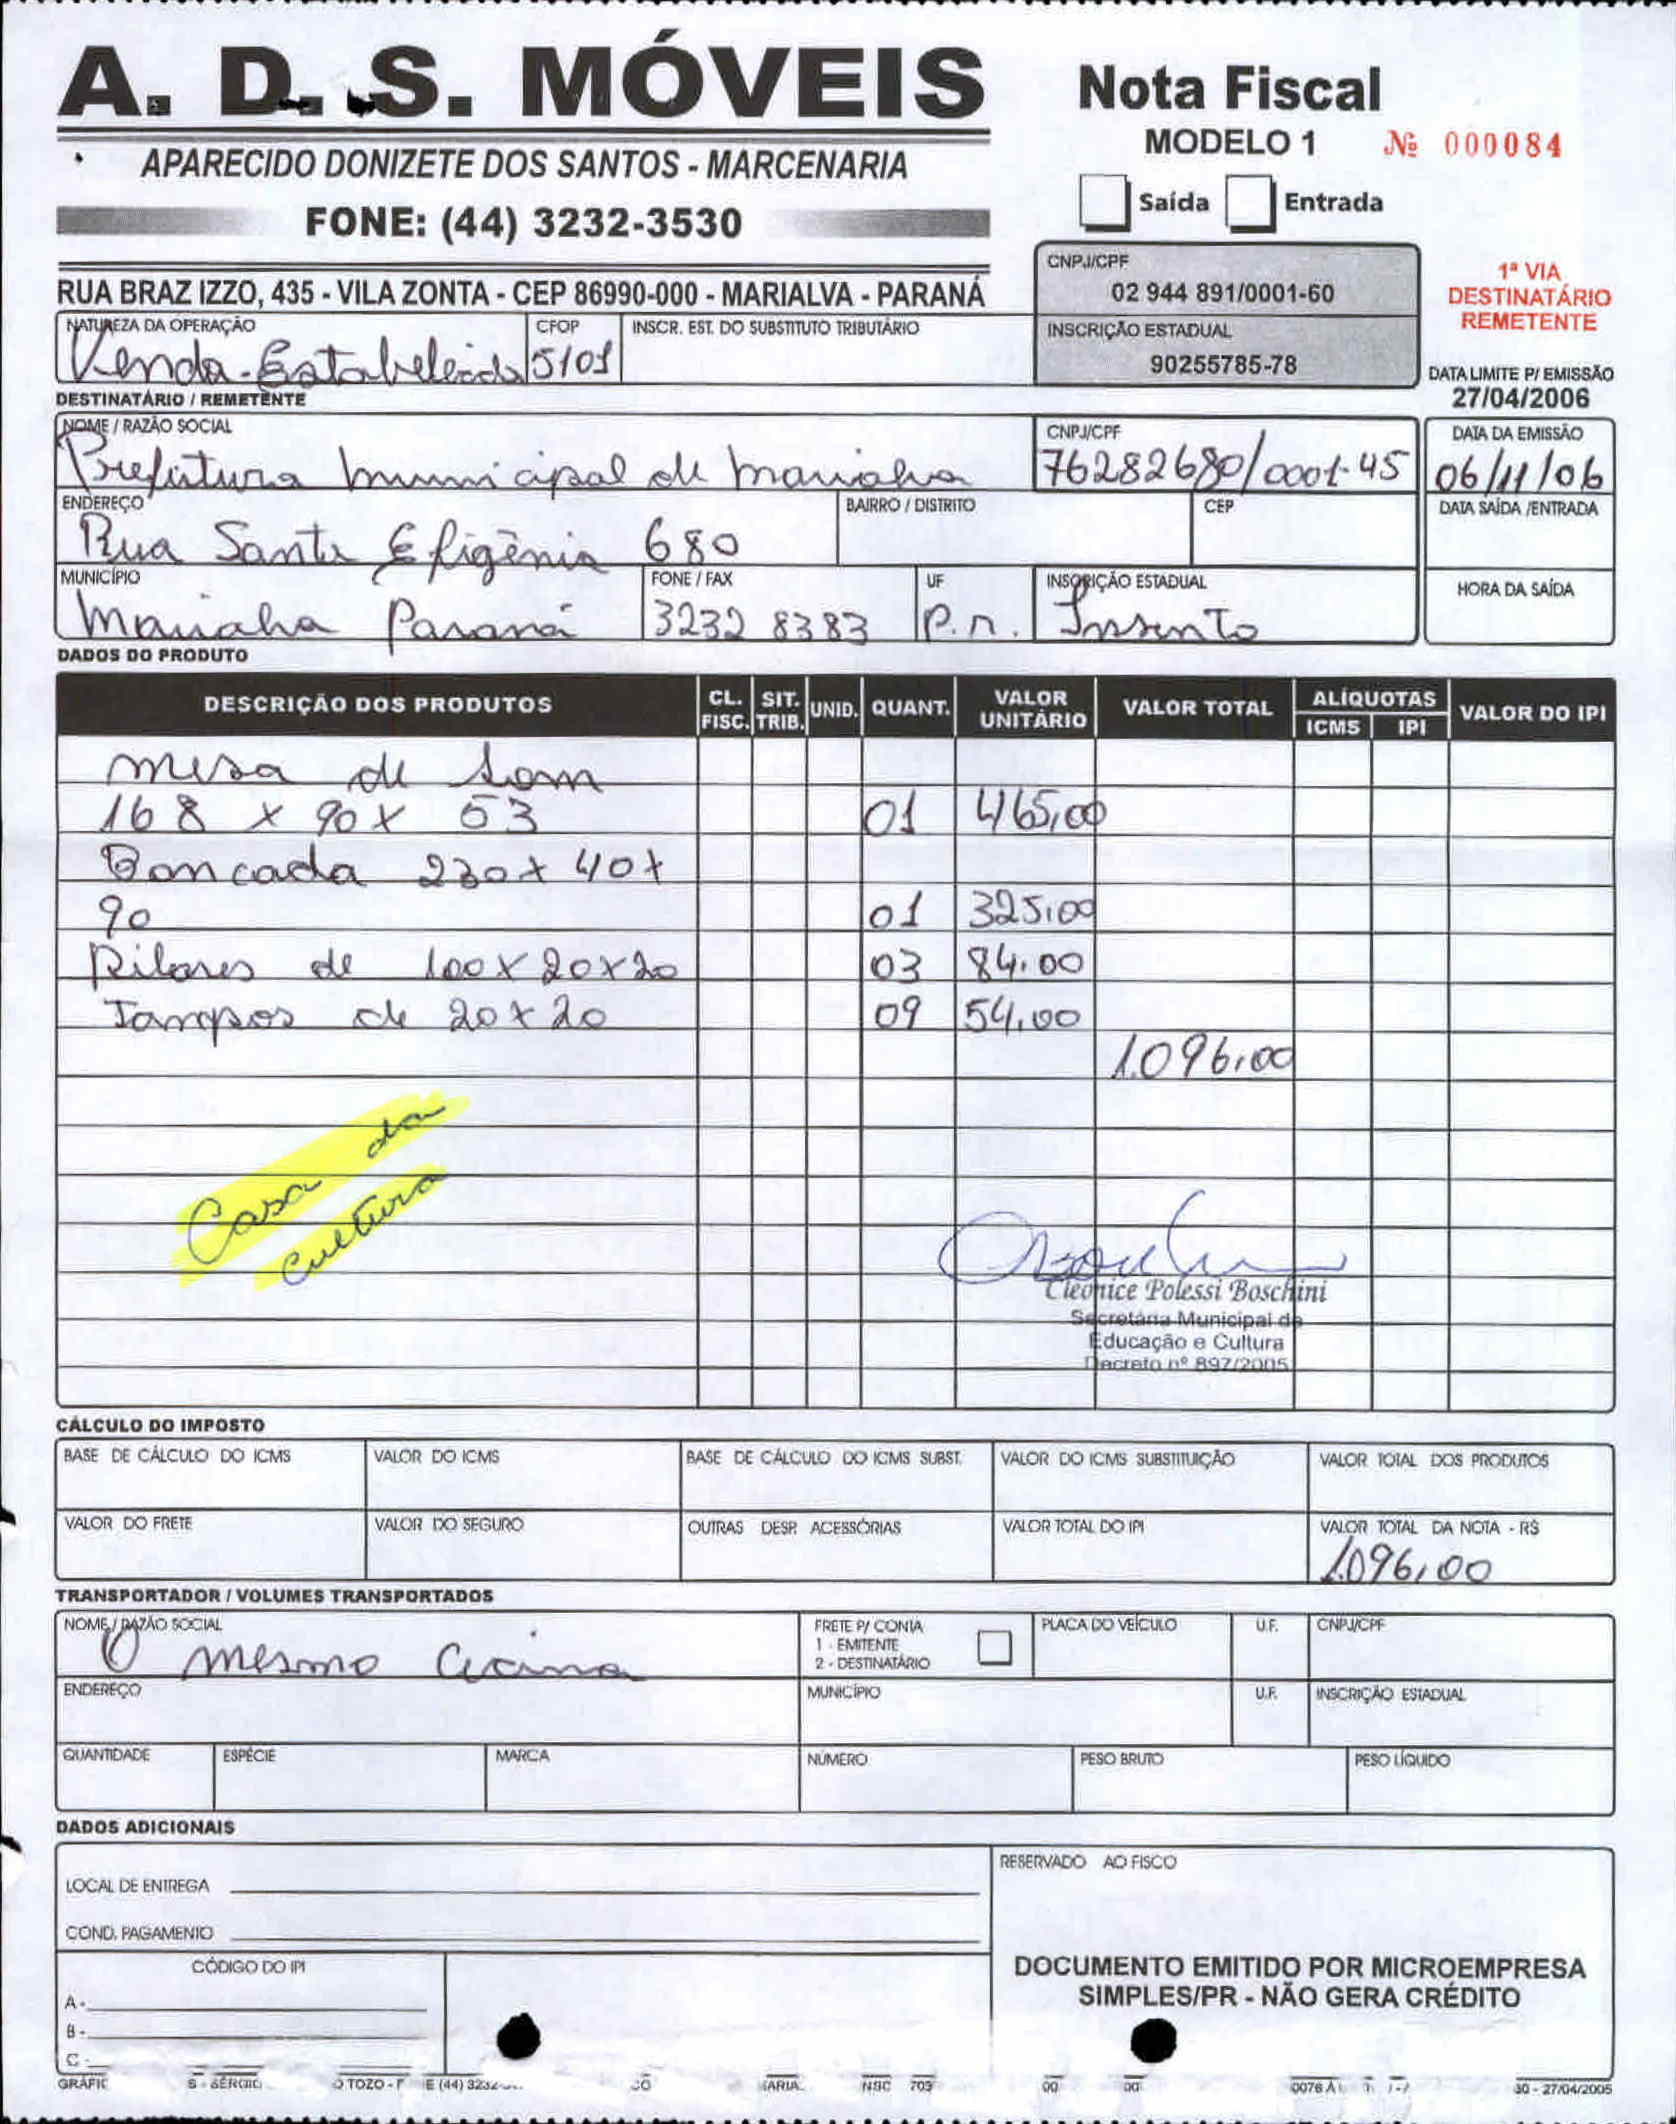 A. D. S. MÓVEIS
APARECIDO DONIZETE DOS SANTOS - MARCENARIA
FONE: (44) 3232-3530
RUA BRAZ IZZO, 435 - VILA ZONTA - CEP 86990-000 - MARIALVA - PARANÁ
Nota Fiscal
MODELO 1 Nº 000084
Saída Entrada
CNPJ/CPF
02 944 891/0001-60
INSCRIÇÃO ESTADUAL
90255785-78
1ª VIA
DESTINATÁRIO
REMETENTE
DATA LIMITE P/ EMISSÃO
27/04/2006
NATUREZA DA OPERAÇÃO CFOP INSCR. EST. DO SUBSTITUTO TRIBUTÁRIO
Venda. 5101
DESTINATÁRIO / REMETENTE
NOME / RAZÃO SOCIAL CNPJ/CPF DATA DA EMISSÃO
Prefeitura municipal de marialva 76282680/0001-45 06/11/06
ENDEREÇO BAIRRO / DISTRITO CEP DATA SAÍDA /ENTRADA
Rua Santa Efigênia 680
MUNICÍPIO FONE / FAX UF INSCRIÇÃO ESTADUAL HORA DA SAÍDA
Marialva Paraná 3232 8383 P.r.
DADOS DO PRODUTO
DESCRIÇÃO DOS PRODUTOS CL. FISC. SIT. TRIB. UNID. QUANT. VALOR UNITÁRIO VALOR TOTAL ALÍQUOTAS ICMS IPI VALOR DO IPI
mesa de som
168 x 90 x 53 01 465,00
Bancada 230 x 40 x
90 01 325,00
Pilares de 100 x 20 x 20 03 84,00
Tampos de 20 x 20 09 54,00
1.096,00
Casa da
cultura
Cleonice Polessi Boschini
Secretária Municipal de
Educação e Cultura
Decreto nº 897/2005
CÁLCULO DO IMPOSTO
BASE DE CÁLCULO DO ICMS VALOR DO ICMS BASE DE CÁLCULO DO ICMS SUBST. VALOR DO ICMS SUBSTITUIÇÃO VALOR TOTAL DOS PRODUTOS
VALOR DO FRETE VALOR DO SEGURO OUTRAS DESP. ACESSÓRIAS VALOR TOTAL DO IPI VALOR TOTAL DA NOTA - R$
1.096,00
TRANSPORTADOR / VOLUMES TRANSPORTADOS
NOME / RAZÃO SOCIAL FRETE P/ CONTA PLACA DO VEÍCULO U.F. CNPJ/CPF
1 - EMITENTE
2 - DESTINATÁRIO
O mesmo acima
ENDEREÇO MUNICÍPIO U.F. INSCRIÇÃO ESTADUAL
QUANTIDADE ESPÉCIE MARCA NÚMERO PESO BRUTO PESO LÍQUIDO
DADOS ADICIONAIS
LOCAL DE ENTREGA
COND. PAGAMENTO
CÓDIGO DO IPI
A -
B -
C -
RESERVADO AO FISCO
DOCUMENTO EMITIDO POR MICROEMPRESA
SIMPLES/PR - NÃO GERA CRÉDITO
27/04/2005